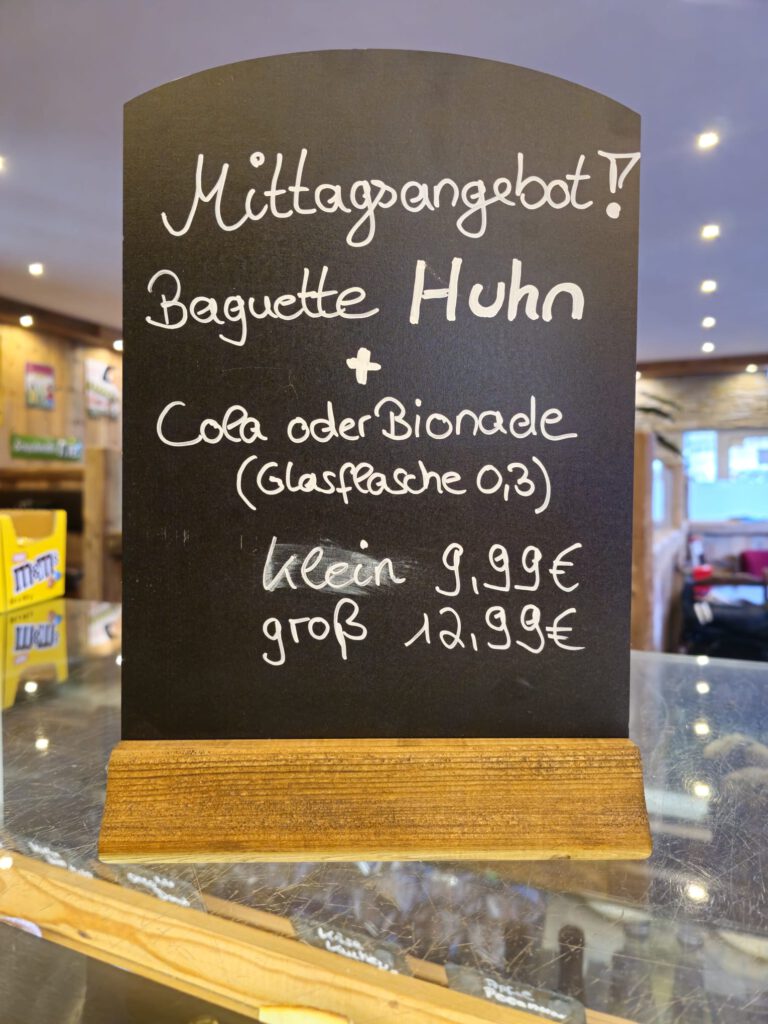 Mittagsangebot!
Baguette Huhn
+
Cola oder Bionade
(Glasflasche 0,3)
klein 9,99€
groß 12,99€
m&m's